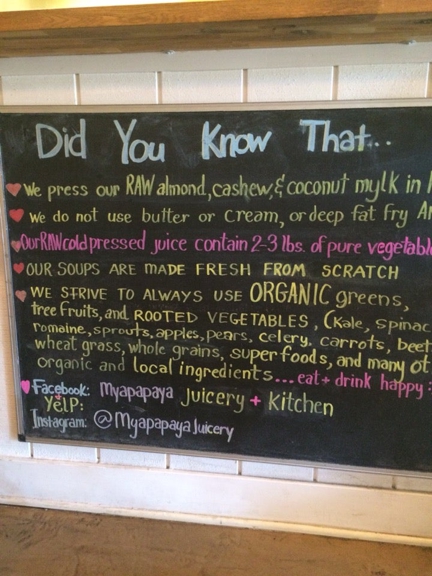 Did You Know That...
We press our RAW almond, cashew, & coconut mylk in
We do not use butter or cream, or deep fat fry
Our RAW cold pressed juice contain 2-3 lbs. of pure vegetabl
OUR SOUPS ARE MADE FRESH FROM SCRATCH
WE STRIVE TO ALWAYS USE ORGANIC greens,
tree fruits, and ROOTED VEGETABLES, (Kale, spinac
romaine, sprouts, apples, pears, celery, carrots, beet
wheat grass, whole grains, super foods, and many ot
organic and local ingredients... eat + drink happy:
Facebook: Myapapaya Juicery + Kitchen
YELP:
Instagram: @MyapapayaJuicery